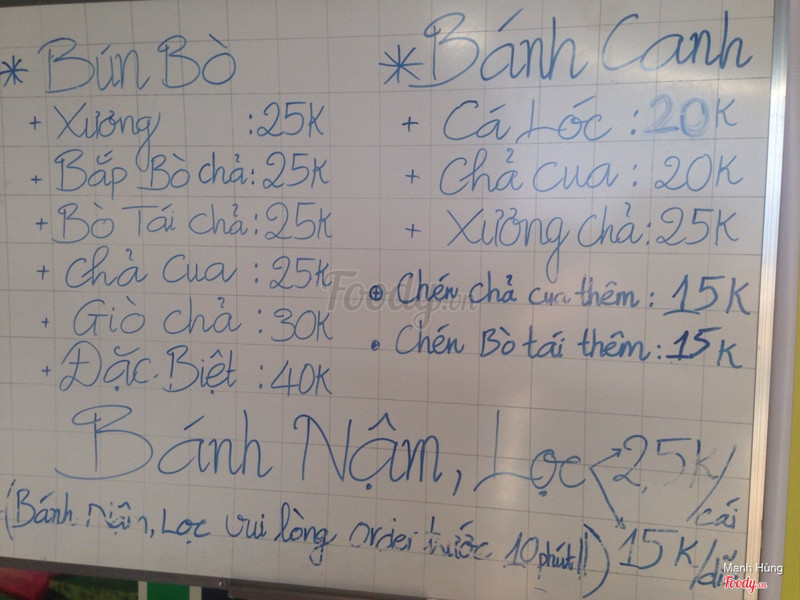 * Bún Bò
+ Xương :25K
+ Bắp Bò chả: 25K
+ Bò Tái chả: 25K
+ Chả Cua : 25K
+ Giò chả : 30K
+ Đặc. Biệt : 40K
* Bánh Canh
+ Cá Lóc : 20K
+ Chả Cua : 20K
+ Xương chả: 25K
⊕ Chén chả cua thêm : 15K
• Chén Bò tái thêm : 15K
Bánh Nậm, Lọc 2,5K/cái
15K/dĩa
(Bánh Nậm, Lọc vui lòng order trước 10 phút!!)
Foody.vn
Manh Hùng
Foody.vn